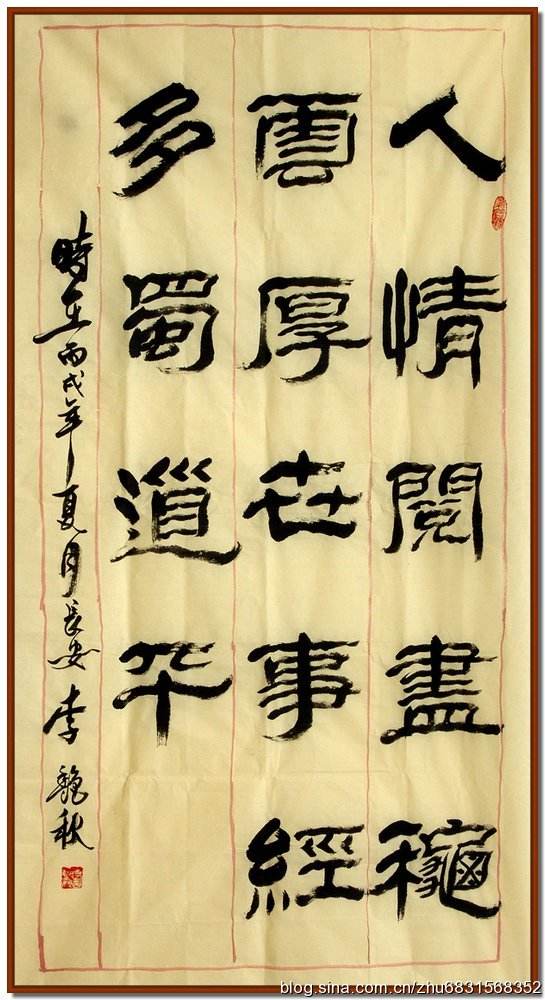 人情閱盡龝
雲厚世事經
多蜀道平
時在丙戌年夏月長安李秋
blog.sina.com.cn/zhu6831568352